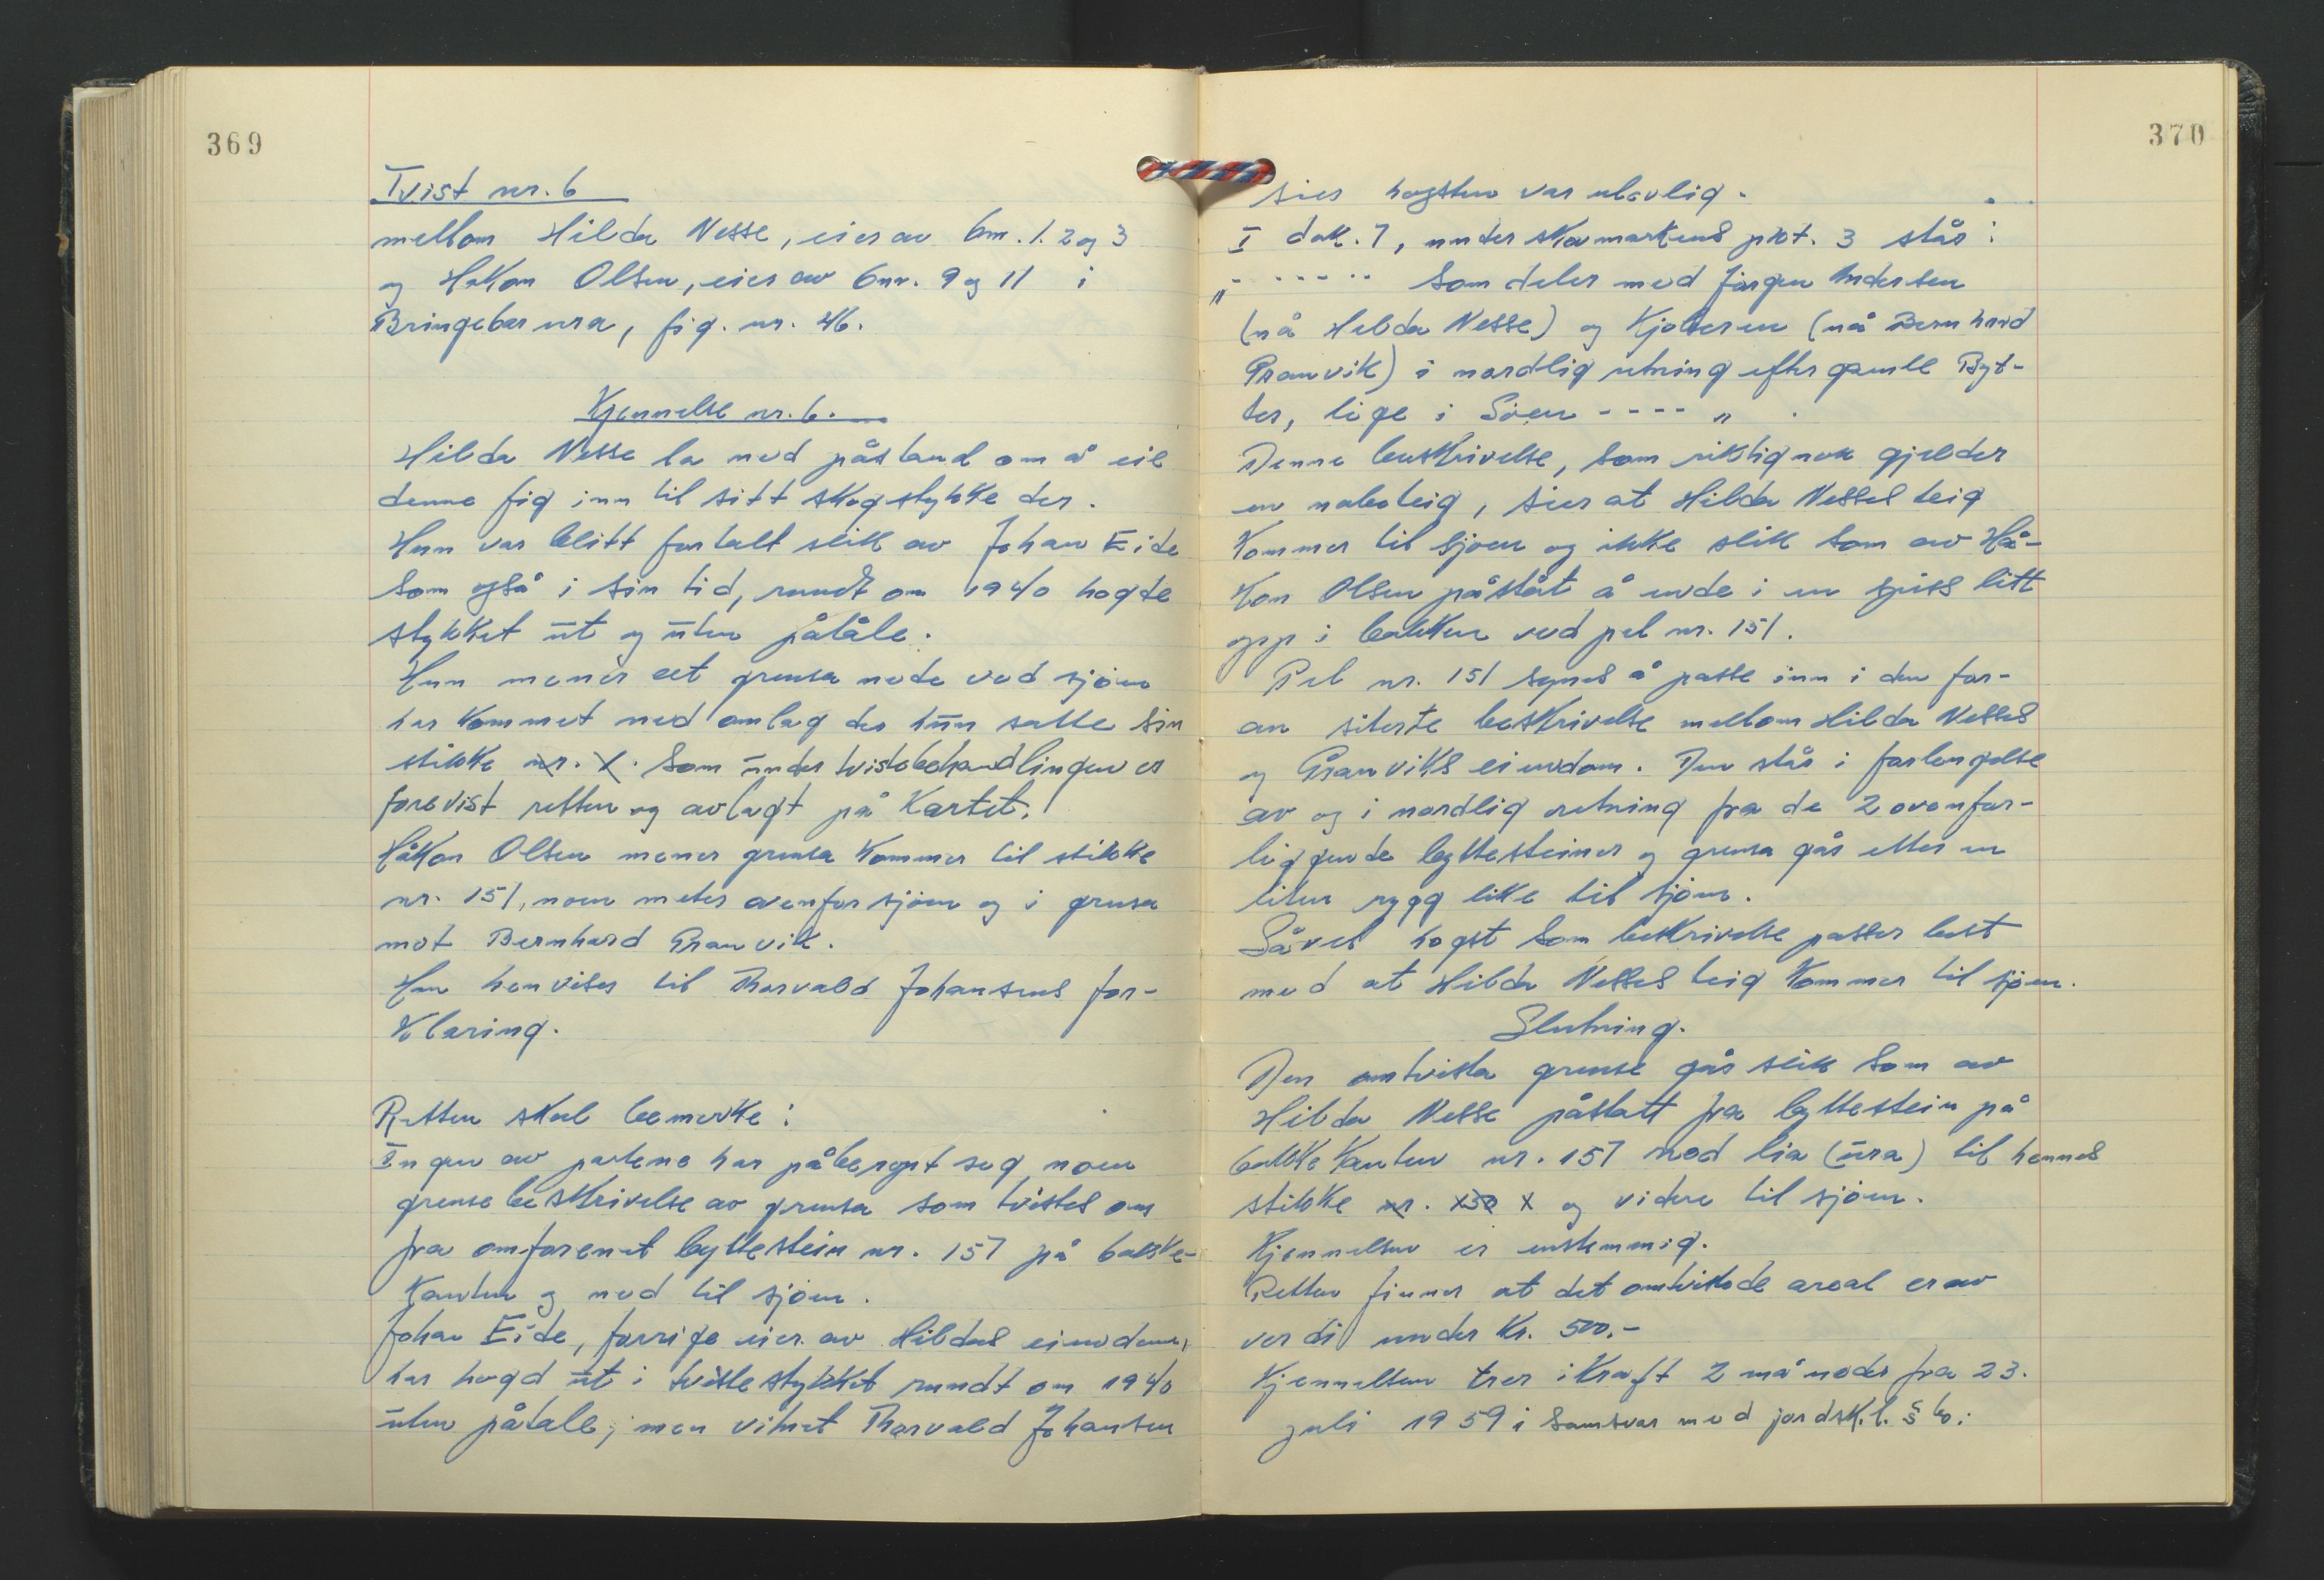 369
Tvist nr. 6
mellom Hilda Nesse, eier av bnr. 1. 2 og 3
og Håkon Olsen, eier av bnr. 9 og 11 i
Bringebærura, fig. nr. 46.
Kjennelse nr. 6.
Hilda Nesse la ned påstand om å eie
denne fig inn til sitt skogstykke der.
Hun var blitt fortalt slik av Johan Eide
som også i sin tid, rundt om 1940 hogde
stykket ut og uten påtale.
Hun mener at grensa nede ved sjøen
har kommet ned omlag der hun satte sin
stikke nr. X. som under tvistebehandlingen er
forevist retten og avlagt på kartet.
Håkon Olsen mener grensa kommer til stikke
nr. 151, noen meter ovenfor sjøen og i grensa
mot Bernhard Granvik.
Han henviser til Thorvald Johansens for-
klaring.
Retten skal bemerke:
Ingen av partene har påberopt seg noen
grensebeskrivelse av grensa som tvistes om
fra omforenet byttestein nr. 157 på bakke-
kanten og ned til sjøen.
Johan Eide, forrige eier av Hildas eiendom,
har hogd ut i tvistestykket rundt om 1940
uten påtale; men vitnet Thorvald Johansen
370
sier hogsten var ulovlig.
I dok. 7, under skovmarkens prot. 3 står:
" - - - - - som deler med Jørgen Andersen
(nå Hilda Nesse) og Kjølseren (nå Bernhard
Granvik) i nordlig retning efter gamle Byt-
ter, lige i Søen - - - - " .
Denne beskrivelse, som riktignok gjelder
en naboteig, sier at Hilda Nesses teig
kommer til sjøen og ikke slik som av Hå-
kon Olsen påstått å ende i en spiss litt
opp i bakken ved pel nr. 151.
Pel nr. 151 synes å passe inn i den for-
an siterte beskrivelse mellom Hilda Nesses
og Granviks eiendom. Den står i forlengelse
av og i nordlig retning fra de 2 ovenfor-
liggende byttesteiner og grensa går etter en
liten rygg like til sjøen.
Såvel hogst som beskrivelse passer best
med at Hilda Nesses teig kommer til sjøen.
Slutning.
Den omtvista grense går slik som av
Hilda Nesse påstått fra byttestein på
bakkekanten nr. 157 ned lia (ura) til hennes
stikke nr. 150 X og videre til sjøen.
Kjennelsen er enstemmig.
Retten finner at det omtvistede areal er av
verdi under kr. 500.-
Kjennelsen trer i kraft 2 måneder fra 23.
juli 1959 i samsvar med jordsk.l. §